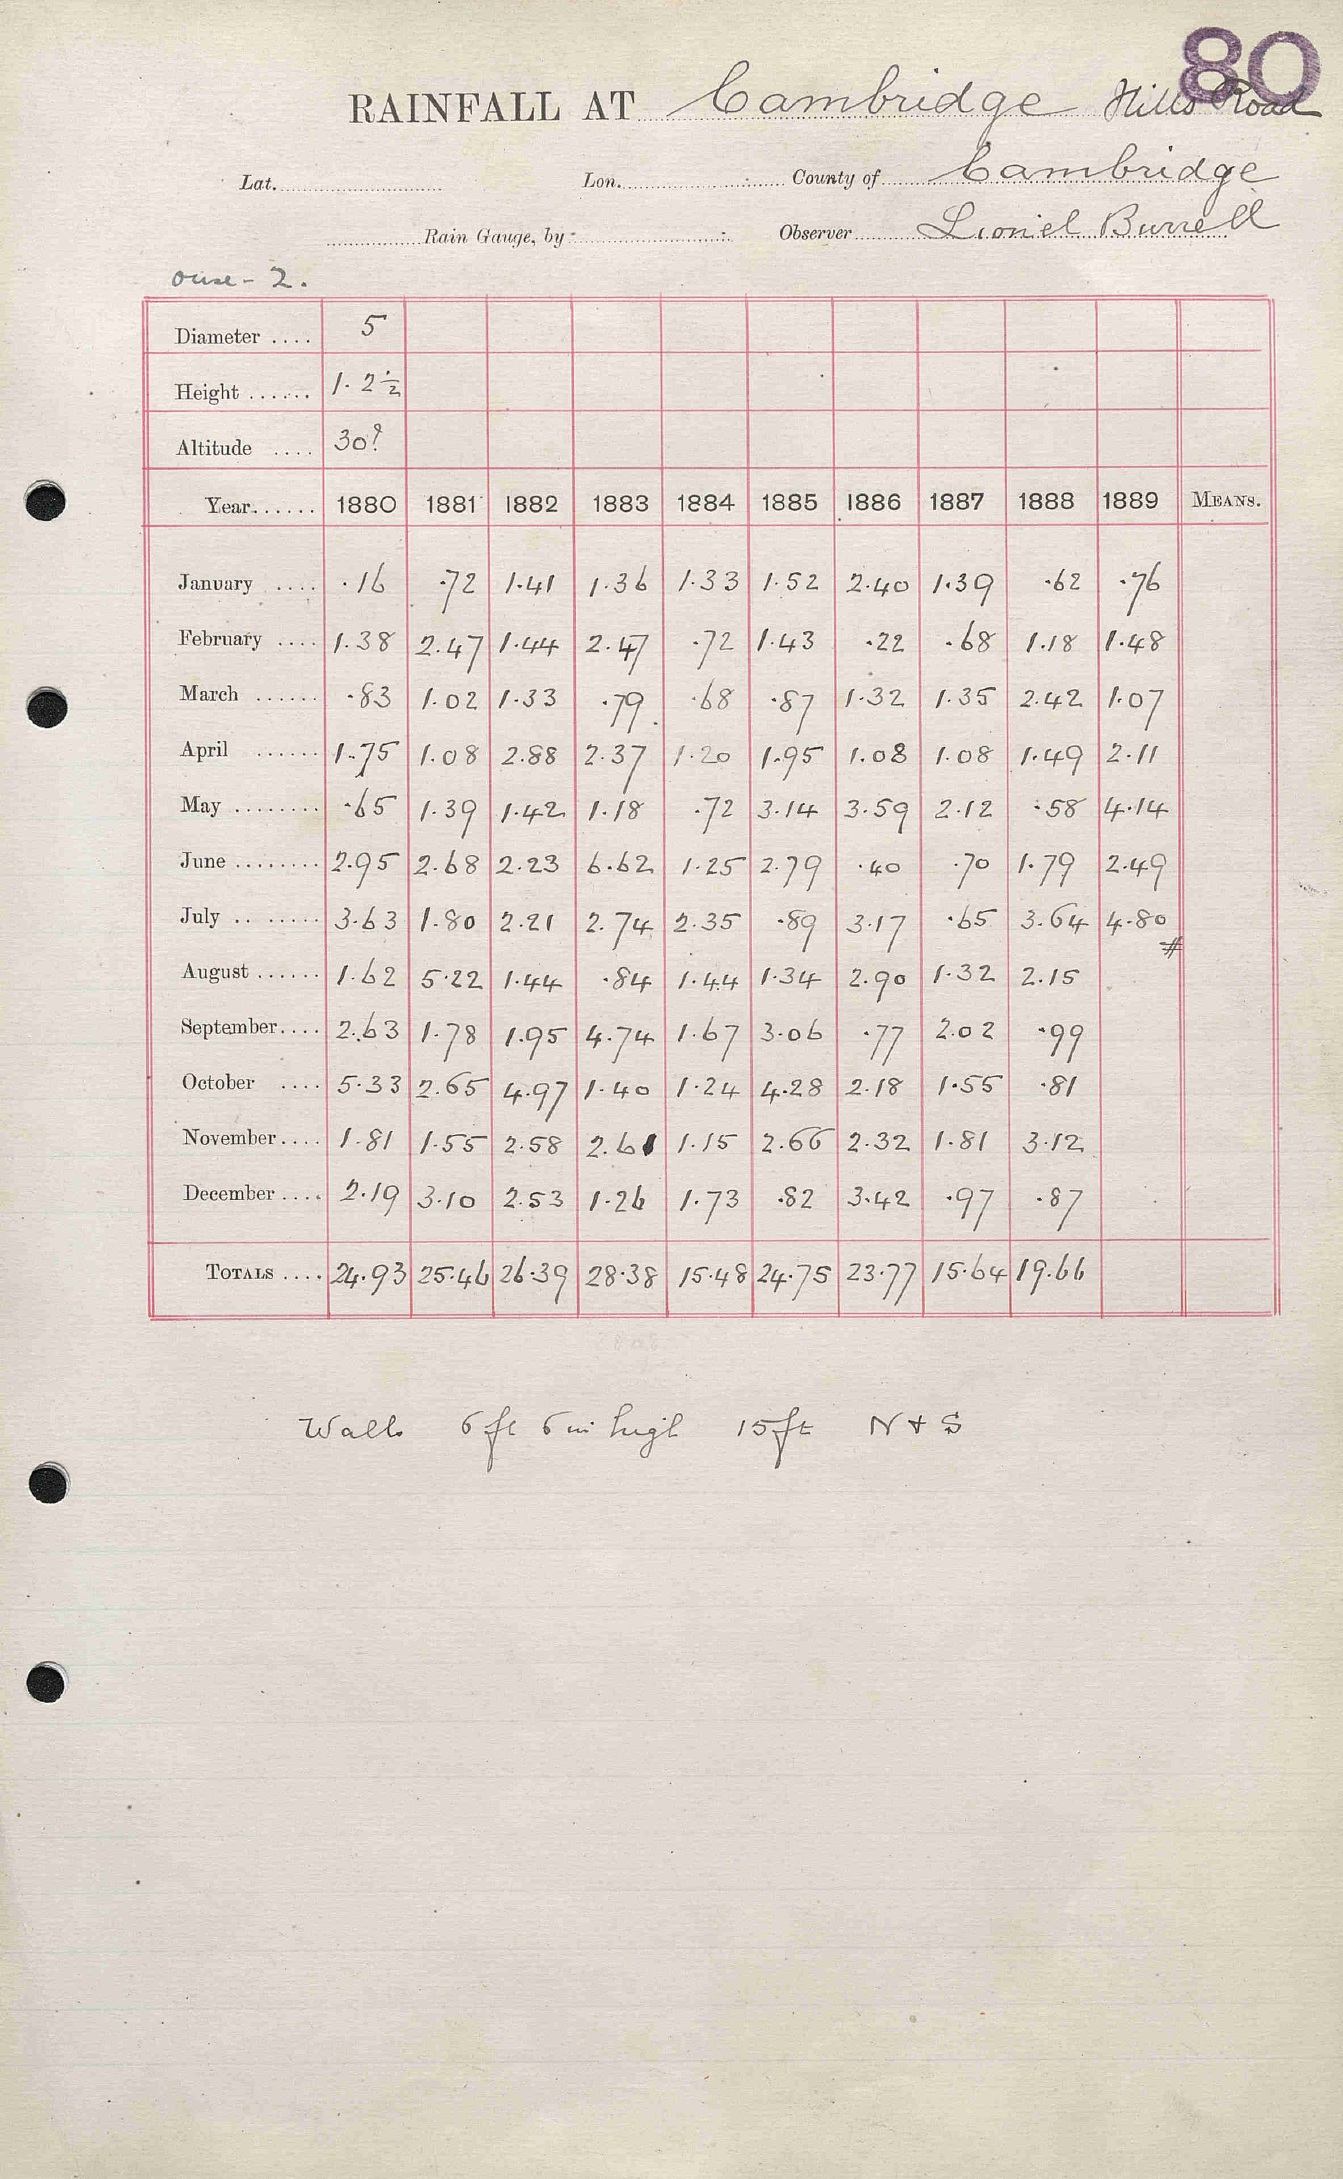 80
RAINFALL AT Cambridge Hills Road
Lat. Lon. County of Cambridge
Rain Gauge, by Observer Lionel Burrell
Ouse - 2.
Diameter .... 5
Height ...... 1. 2 1/2
Altitude .... 30?
Year...... 1880 1881 1882 1883 1884 1885 1886 1887 1888 1889 MEANS.
January .... .16 .72 1.41 1.36 1.33 1.52 2.40 1.39 .62 .76
February .... 1.38 2.47 1.44 2.47 .72 1.43 .22 .68 1.18 1.48
March ...... .83 1.02 1.33 .79 .68 .87 1.32 1.35 2.42 1.07
April ...... 1.75 1.08 2.88 2.37 1.20 1.95 1.08 1.08 1.49 2.11
May ........ .65 1.39 1.42 1.18 .72 3.14 3.59 2.12 .58 4.14
June ........ 2.95 2.68 2.23 6.62 1.25 2.79 .40 .70 1.79 2.49
July .. ...... 3.63 1.80 2.21 2.74 2.35 .89 3.17 .65 3.64 4.80 #
August ...... 1.62 5.22 1.44 .84 1.44 1.34 2.90 1.32 2.15
September.... 2.63 1.78 1.95 4.74 1.67 3.06 .77 2.02 .99
October .... 5.33 2.65 4.97 1.40 1.24 4.28 2.18 1.55 .81
November.... 1.81 1.55 2.58 2.61 1.15 2.66 2.32 1.81 3.12
December .... 2.19 3.10 2.53 1.26 1.73 .82 3.42 .97 .87
TOTALS .... 24.93 25.46 26.39 28.38 15.48 24.75 23.77 15.64 19.66
Walls 6 ft 6 in high 15 ft N + S